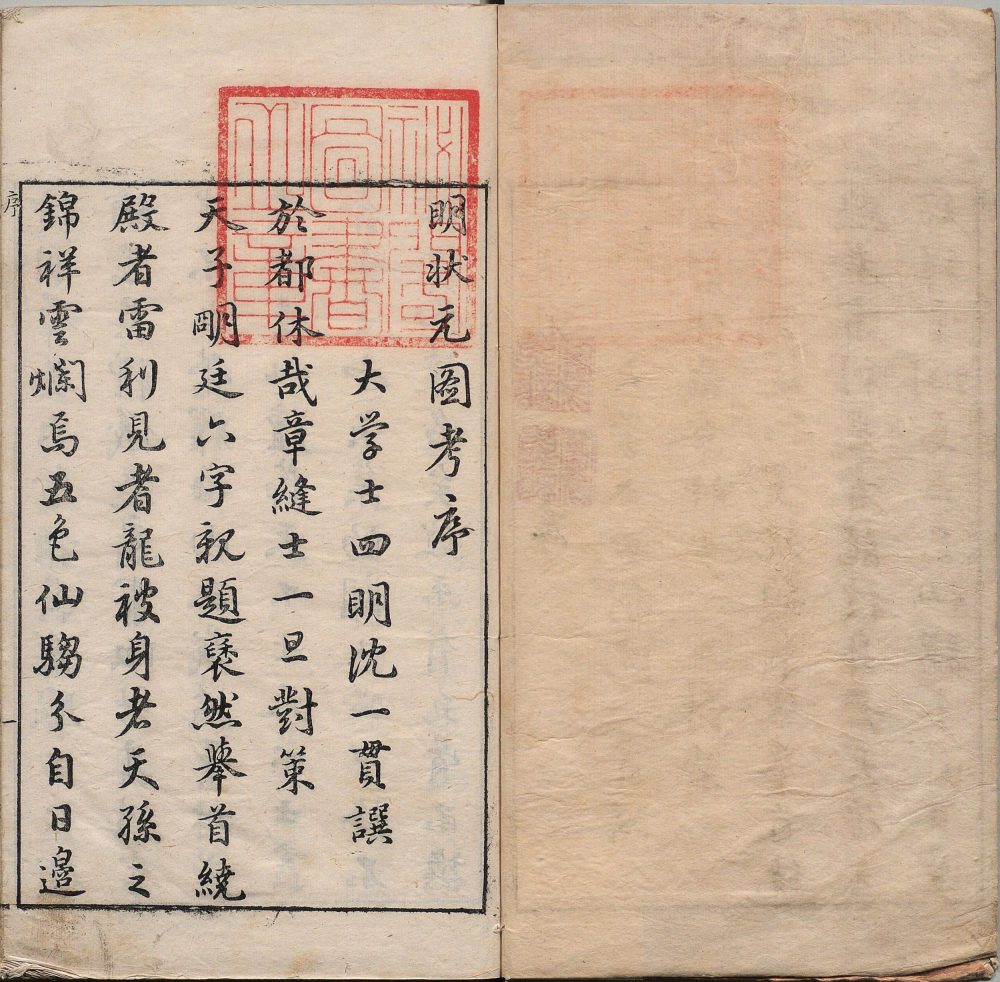 明状元图考序
大学士四明沈一貫譔
於都休哉章縫士一旦對策
天子明廷六字親題褎然舉首繞
殿者雷利見者龍被身者天孫之
錦祥雲爛焉五色仙騶分自日邊
序
一